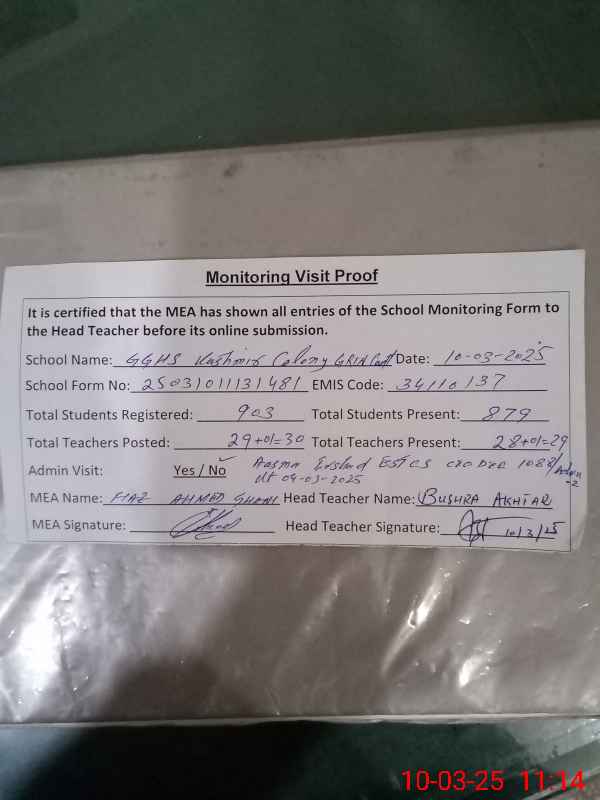 Monitoring Visit Proof
It is certified that the MEA has shown all entries of the School Monitoring Form to
the Head Teacher before its online submission.
School Name: GGHS Kashmir Colony Date: 10-03-2025
School Form No: 25031011131481 EMIS Code: 34110137
Total Students Registered: 903 Total Students Present: 879
Total Teachers Posted: 29+01=30 Total Teachers Present: 28+01=29
Admin Visit: Yes / No Aasma 1088/Admn
-2
MEA Name: FIAZ AHMED Head Teacher Name: BUSHRA AKHTAR
MEA Signature: Head Teacher Signature: 10/3/25
10-03-25 11:14